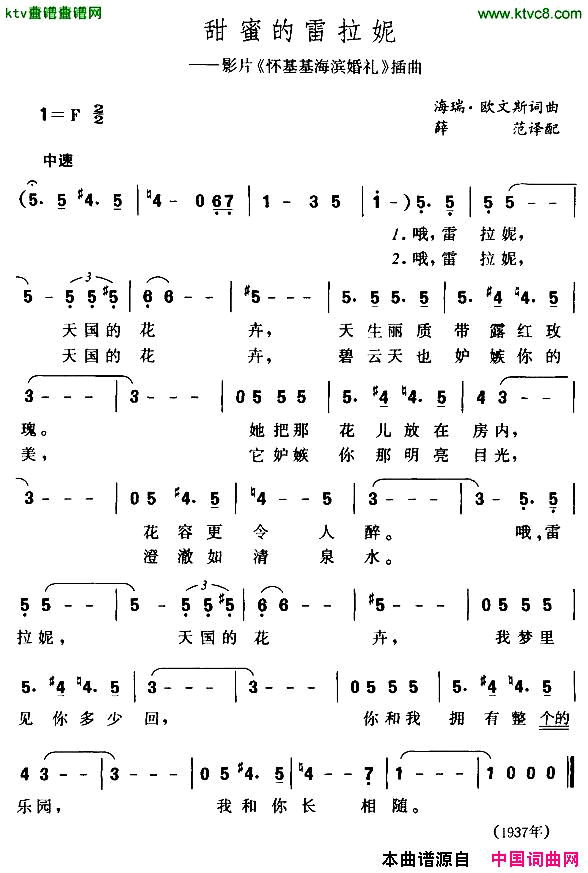 ktv曲谱曲谱网
www.ktvc8.com
甜蜜的雷拉妮
——影片《怀基基海滨婚礼》插曲
1=F 2/2
海瑞·欧文斯词曲
薛 范译配
中速
(5. 5 #4. 5 | ♮4 - 0 67 | 1 - 3 5 | i -) 5. 5 | 5 5 - - |
1.哦,雷 拉妮,
2.哦,雷 拉妮,
5 - 5 5 #5 | 6 6 - - | #5 - - - | 5. 5 5. 5 | 5. #4 ♮4. 5 |
天国的花 卉, 天生丽质 带露红玫
天国的花 卉, 碧云天也 妒嫉你的
3 - - - | 3 - - - | 0 5 5 5 | 5. #4 ♮4. 5 | 4 3 - - |
瑰。 她把那 花儿放在 房内,
美, 它妒嫉 你那明亮 目光,
3 - - - | 0 5 #4. 5 | ♮4 - 5 5 | 3 - - - | 3 - 5. 5 |
花容更 令 人 醉。 哦,雷
澄澈如 清 泉 水。
5 5 - - | 5 - 5 5 #5 | 6 6 - - | #5 - - - | 0 5 5 5 |
拉妮, 天国的花 卉, 我梦里
5. #4 ♮4. 5 | 3 - - - | 3 - - - | 0 5 5 5 | 5. #4 ♮4. 5 |
见你多少 回, 你和我 拥有整个的
4 3 - - | 3 - - - | 0 5 #4. 5 | ♮4 - - 7 | 1 - - - | 1 0 0 0 ‖
乐园, 我和你长 相随。
(1937年)
本曲谱源自 中国词曲网